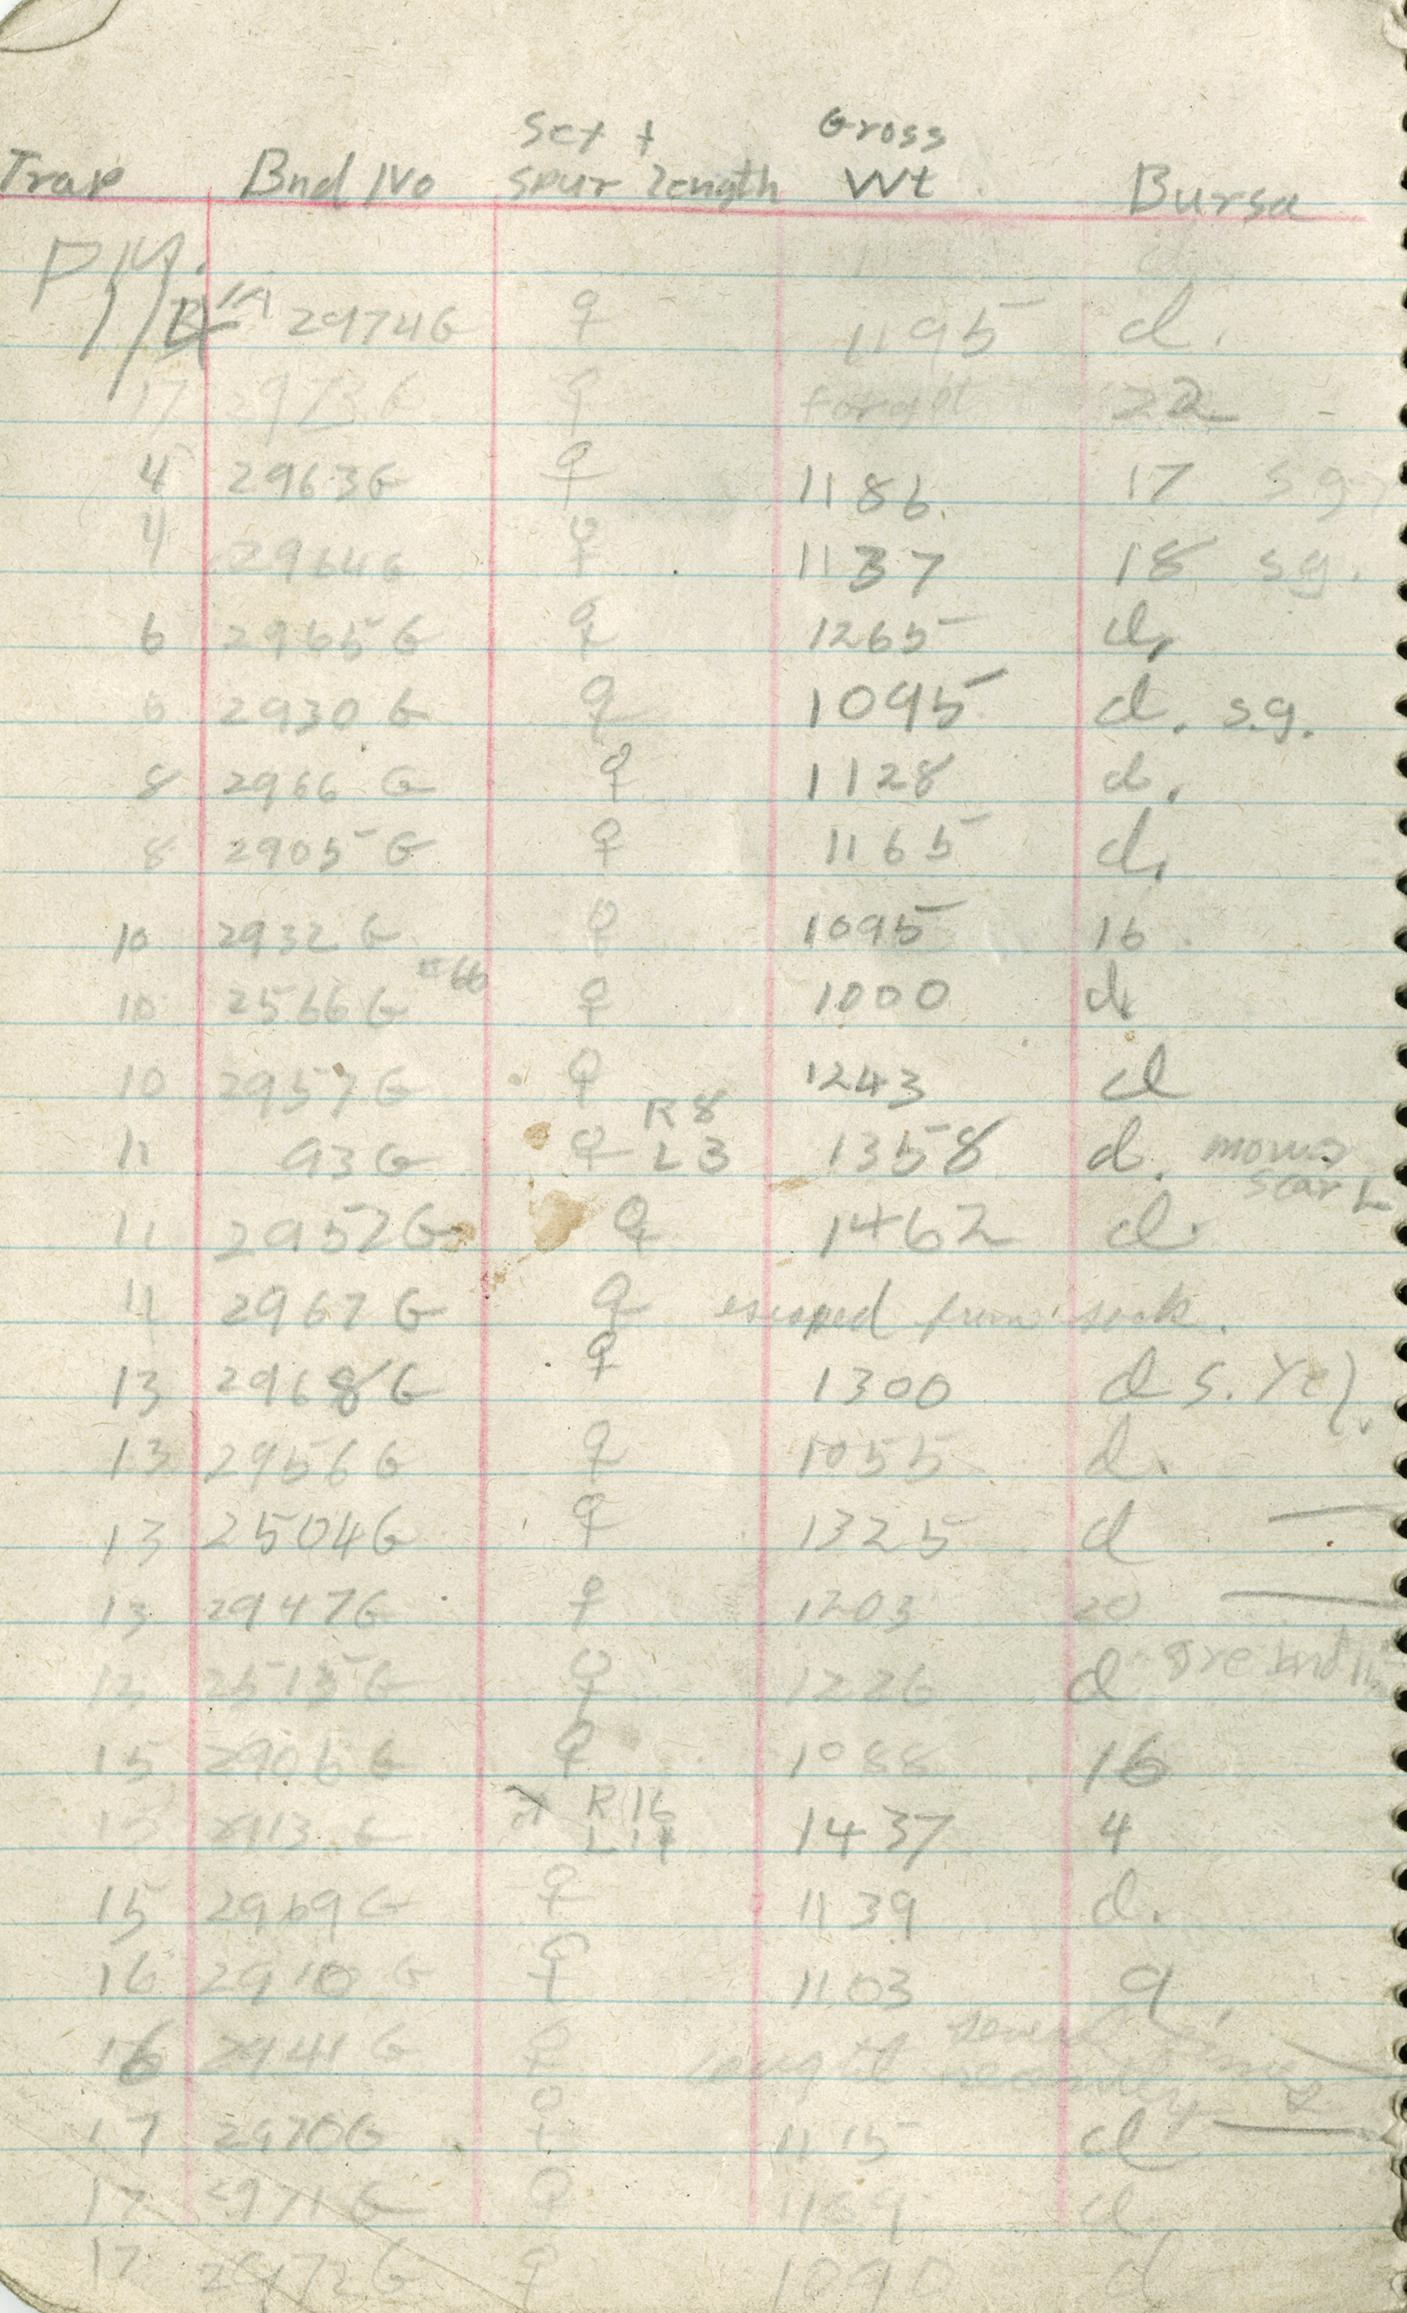 Sex + Gross
Trap Bnd No spur length Wt Bursa
P.M.
1A 2974G ♀ 1195 d.
17 2973G ♀ forgot 22
4 2963G ♀ 1186 17 sg.
4 2964G ♀ 1137 18 sg.
6 2965G ♀ 1265 d.
6 2930G ♀ 1095 d. s.g.
8 2966G ♀ 1128 d.
8 2905G ♀ 1165 d.
10 2932G ♀ 1095 16
10 2566G =66 ♀ 1000 d.
10 2957G ♀ 1243 d
R8
11 93G ♀ L3 1358 d.
scar L
11 2952G ♀ 1462 d.
11 2967G ♀ escaped from sack.
13 2968G ♀ 1300 d S. Yel.
13 2956G ♀ 1055 d.
13 2504G ♀ 1325 d —
13 2947G ♀ 1203 20 —
13 2515G ♀ 1226 d
15 2906G ♀ 1088 16
R 16
15 G L 14 1437 4
15 2969G ♀ 1139 d.
16 2910G ♀ 1103 9.
several times
16 2941G ♀ caught recently
17 2970G ♀ 1115 d —
17 2971G ♀ 1189 d.
17 2972G ♀ 1090 d